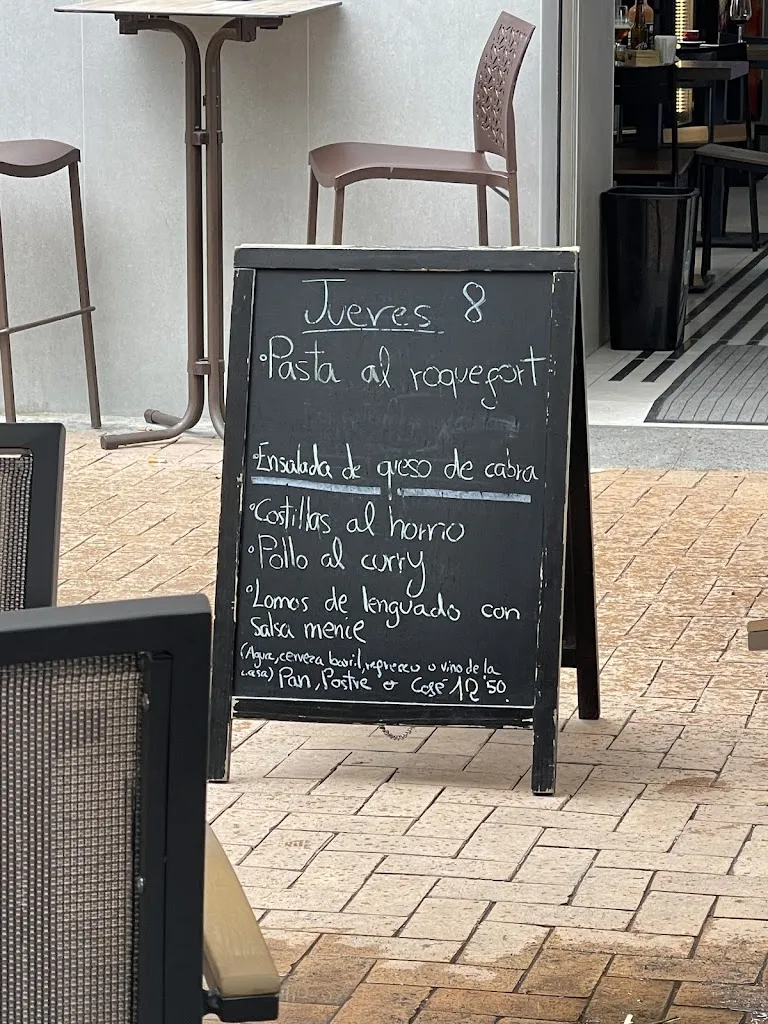 Jueves 8
•Pasta al roquefort
•Ensalada de queso de cabra
•Costillas al horno
•Pollo al curry
•Lomos de lenguado con
Salsa menie
(Agua, cerveza barril, refresco o vino de la
casa) Pan, Postre o Café 12'50